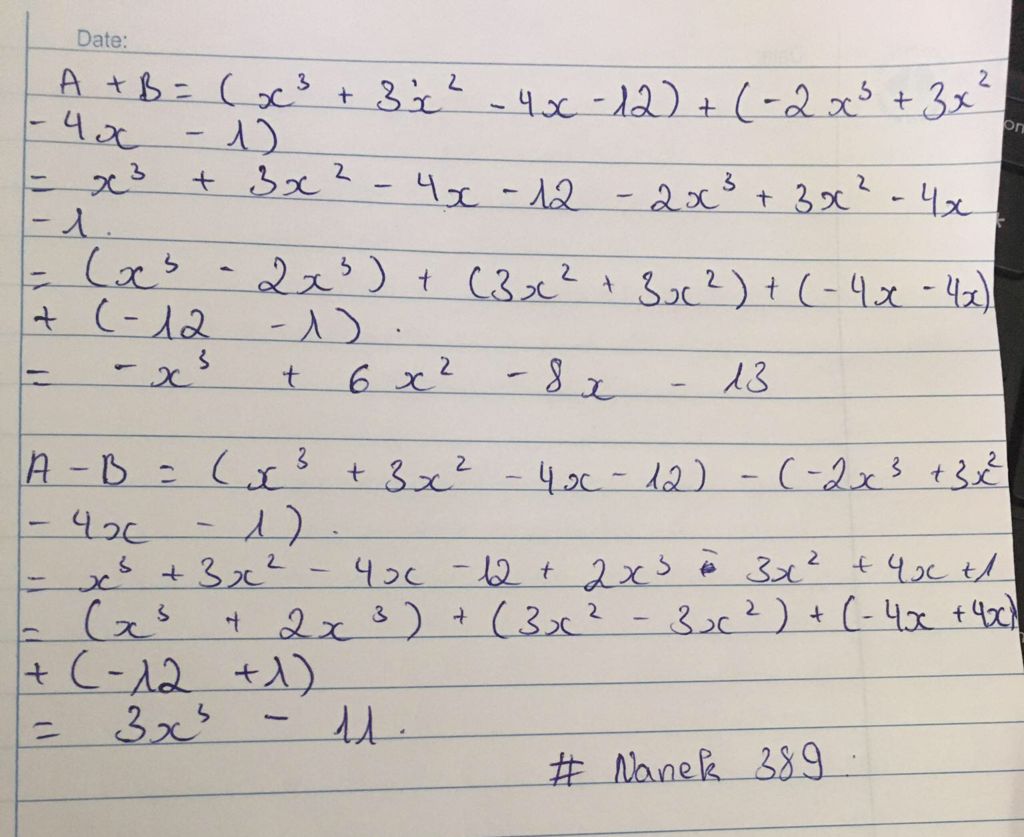 Date:
A + B = (x³ + 3x² - 4x - 12) + (-2x³ + 3x²
- 4x - 1)
= x³ + 3x² - 4x - 12 - 2x³ + 3x² - 4x
- 1.
= (x³ - 2x³) + (3x² + 3x²) + (-4x - 4x)
+ (-12 - 1).
= -x³ + 6x² - 8x - 13
A - B = (x³ + 3x² - 4x - 12) - (-2x³ + 3x²
- 4x - 1).
= x³ + 3x² - 4x - 12 + 2x³ - 3x² + 4x + 1
= (x³ + 2x³) + (3x² - 3x²) + (-4x + 4x)
+ (-12 + 1)
= 3x³ - 11.
# Nanek 389